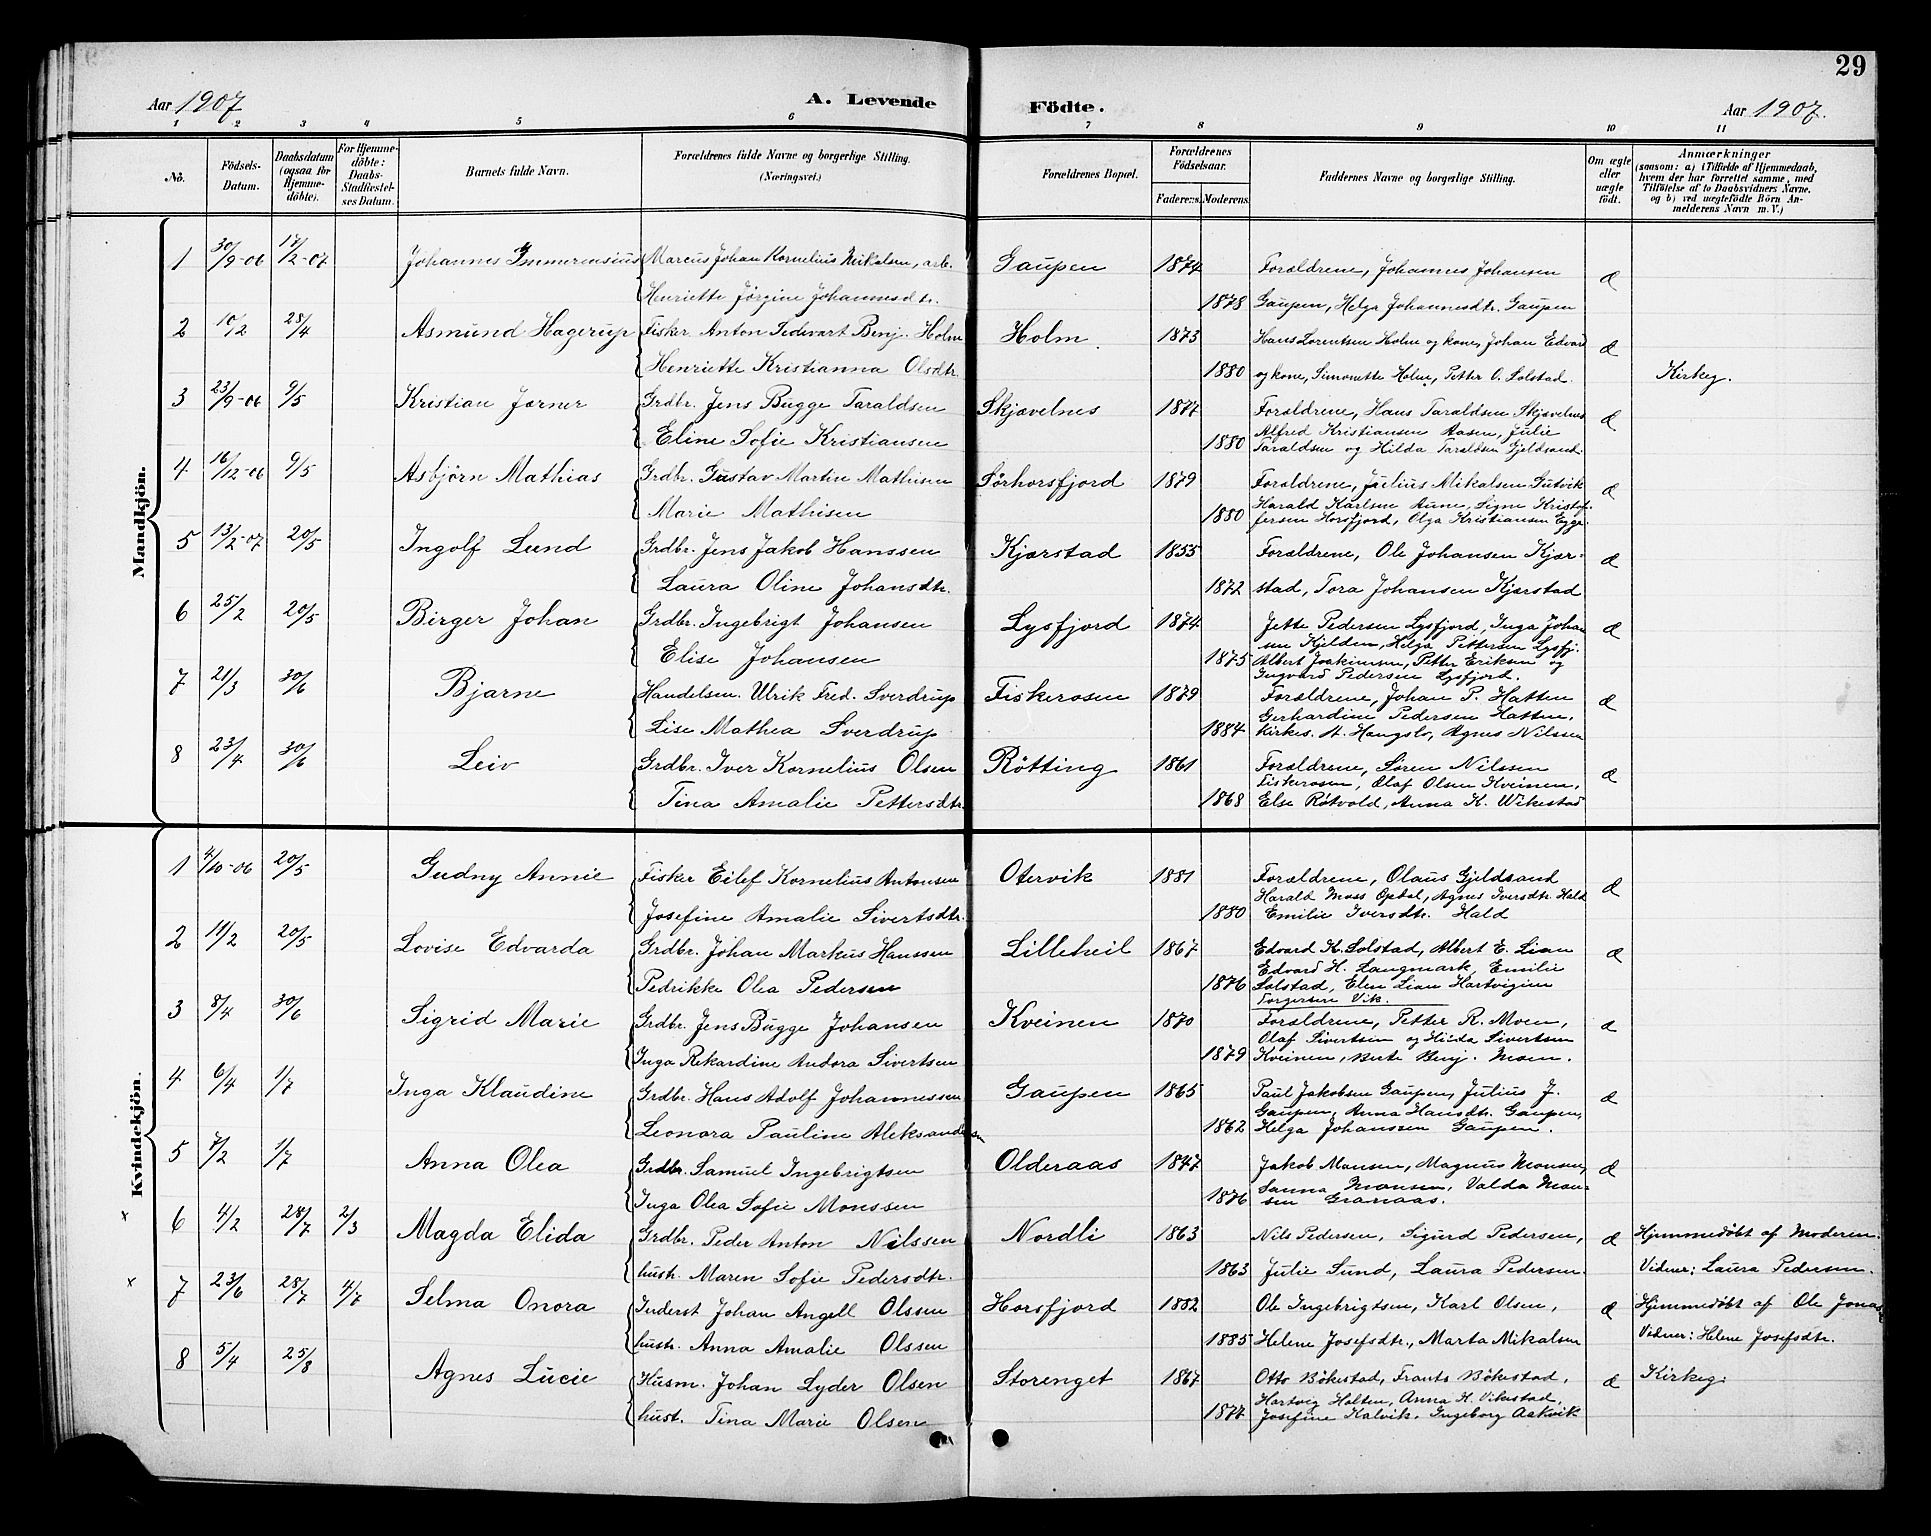 29
Aar 1907
A. Levende Födte.
Aar 1907.
1 2 3 4 5 6 7 8 9 10 11
No.
Födsels-Datum.
Daabsdatum (ogsaa for Hjemmedöbte).
For Hjemmedöbte: Daabs-Stadfæstelses Datum.
Barnets fulde Navn.
Forældrenes fulde Navne og borgerlige Stilling. (Næringsvei.)
Forældrenes Bopæl.
Forældrenes Födselsaar.
Faderens. Moderens.
Faddernes Navne og borgerlige Stilling.
Om ægte eller uægte födt.
Anmærkninger
(saasom: a) i Tilfælde af Hjemmedaab,
hvem der har forrettet samme, med
Tilföielse af to Daabsvidners Navne,
og b) ved uægtefödte Börn An-
melderens Navn m. V.)
Mandkjön.
1 30/9-06 17/2-07 Johannes Immerensius Marcus Johan Kornelius Mikalsen, arb. Gaupen 1874 Forældrene, Johannes Johansen æ
Henriette Jörgine Johannesdtr. 1878 Gaupen, Helga Johannesdtr. Gaupen
2 10/2 28/4 Asmund Hagerup Fisker Anton Tedevart Benj. Holm Holm 1873 Hans Lorentsen Holm og kone, Johan Edvard æ
Henriette Kristianna Olsdtr. 1880 og kone, Simonette Holm, Petter O. Solstad. Kirkeg.
3 23/9-06 9/5 Kristian Jørner Grdbr. Jens Bugge Taraldsen Skjævelnes 1877 Forældrene, Hans Taraldsen Skjævelnes æ
Eline Sofie Kristiansen 1880 Alfred Kristiansen Aasen, Julie
Taraldsen og Hilda Taraldsen Gjeldsand.
4 16/12-06 9/5 Asbjörn Mathias Grdbr. Gustav Martin Mathisen Sørhorsfjord 1879 Forældrene, Julius Mikalsen Sutvik æ
Marie Mathisen 1880 Harald Karlsen Aune, Signe Kristof-
fersen Horsfjord, Olga Kristiansen Egge.
5 13/2-07 20/5 Ingolf Lund Grdbr. Jens Jakob Hanssen Kjærstad 1853 Forældrene, Ole Johansen Kjær- æ
Laura Oline Johansdtr. 1872 stad, Tora Johansen Kjærstad
6 25/2 20/5 Birger Johan Grdbr. Ingebrigt Johansen Lysfjord 1874 Jette Pedersen Lysfjord, Inga Johan æ
Elise Johansen 1875 sen Kjelden, Helga Pettersen Lysfj.
Albert Joakimsen, Petter Eriksen og
Ingvard Pedersen Lysfjord.
7 21/3 30/6 Bjarne Handelsm. Ulrik Fred. Sverdrup Fiskerosen 1879 Forældrene, Johan P. Hatten æ
Lise Mathea Sverdrup 1884 Gerhardine Pedersen Hatten,
Kirkes. A. Haugslo, Agnes Nilssen
8 23/4 30/6 Leiv Grdbr. Iver Kornelius Olsen Røtting 1861 Forældrene, Søren Nilssen æ
Tina Amalie Pettersdtr. 1868 Fiskerosen, Olaf Olsen Kveinen,
Else Røtvold, Anna K. Wikestad
Kvindekjön.
1 4/10-06 20/5 Gudny Annie Fisker Eilef Kornelius Antonsen Otervik 1881 Forældrene, Olaus Gjeldsand æ
Josefine Amalie Sivertsdtr. 1880 Harald Moss Opdal, Agnes Iversdtr. Hald
Emilie Iversdtr. Hald
2 11/2 20/5 Lovise Edvarda Grdbr. Johan Markus Hanssen Lilleheil 1867 Edvard K. Solstad, Albert E. Lian æ
Pedrikke Olea Pedersen 1876 Edvard H. Langmark, Emilie
Solstad, Elen Lian Hartvigine
Torgersen Vik.
3 8/4 30/6 Sigrid Marie Grdbr. Jens Bugge Johansen Kveinen 1870 Forældrene, Petter R. Moen, æ
Inga Rikardine Andora Sivertsen 1879 Olaf Sivertsen og Hilda Sivertsen
Kveinen, Berte Benj. Moen.
4 6/4 1/7 Inga Klaudine Grdbr. Hans Adolf Johannessen Gaupen 1865 Paul Jakobsen Gaupen, Julius J. æ
Leonora Pauline Aleksandersen 1862 Gaupen, Anna Hansdtr. Gaupen,
Helga Johanssen Gaupen.
5 7/2 1/7 Anna Olea Grdbr. Samuel Ingebrigtsen Olderaas 1847 Jakob Monsen, Magnus Monsen, æ
Inga Olea Sofie Monssen 1876 Sanna Monsen, Valda Mon-
sen Granaas.
x 6 4/2 28/7 2/3 Magda Elida Grdbr. Peder Anton Nilssen Nordli 1863 Nils Pedersen, Sigurd Pedersen, æ Hjemmedøbt af Moderen.
hustr. Maren Sofie Pedersdtr. 1863 Julie Sund, Laura Pedersen. Vidner: Laura Pedersen.
x 7 23/6 28/7 4/7 Selma Onora Inderst Johan Angell Olssen Horsfjord 1882 Ole Ingebrigtsen, Karl Olsen, æ Hjemmedøbt af Ole Jonas
hustr. Anna Amalie Olssen 1885 Helene Josefsdtr., Marta Mikalsen Vidner: Helene Josefsdtr.
8 5/4 25/8 Agnes Lucie Husm. Johan Lyder Olsen Storenget 1867 Otto Bökestad, Frants Bökestad, æ Kirkeg.
hust. Tina Marie Olsen 1877 Hartvig Holten, Anna H. Vikestad,
Josefine Kalvik, Ingeborg Aakvik